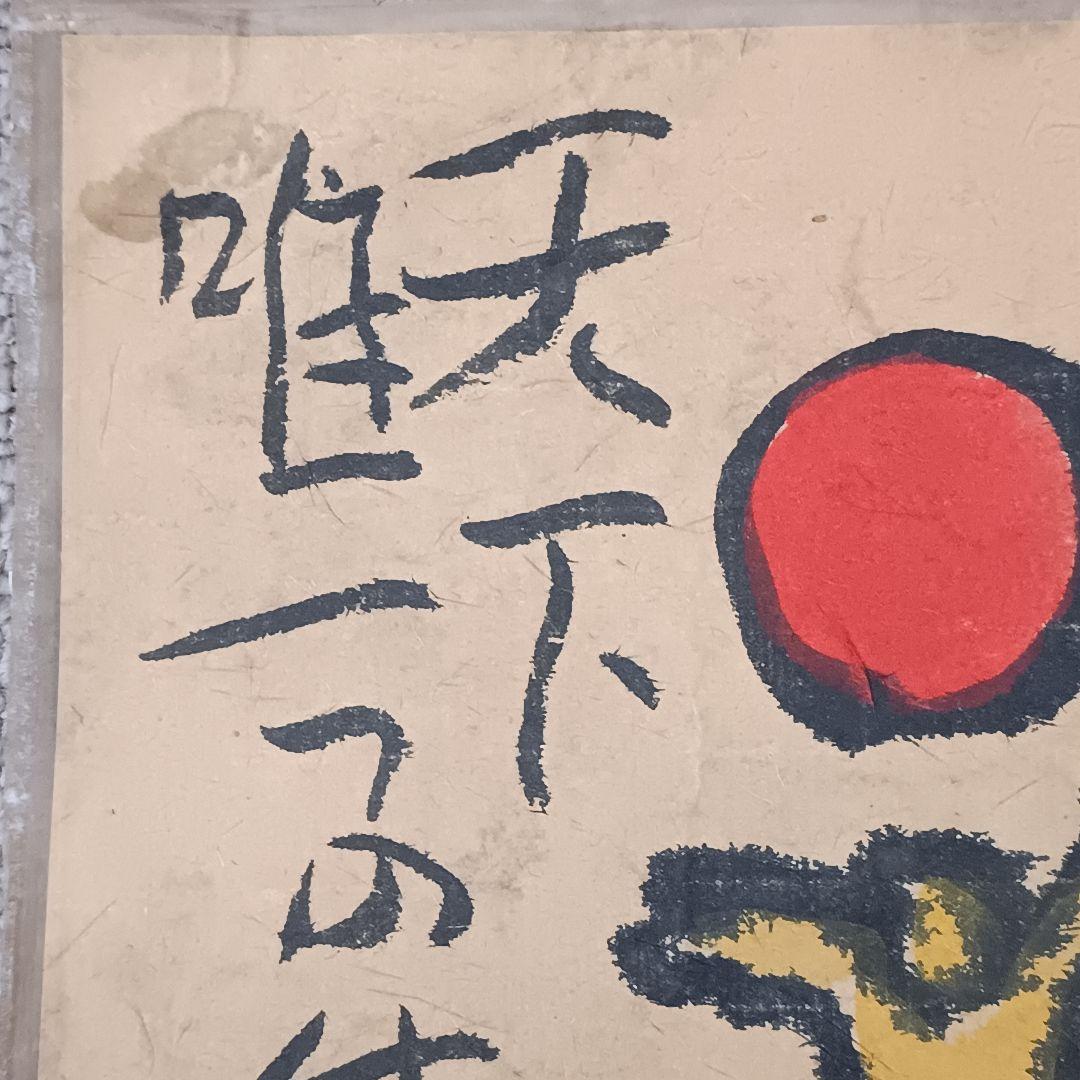 天下
唯一つの